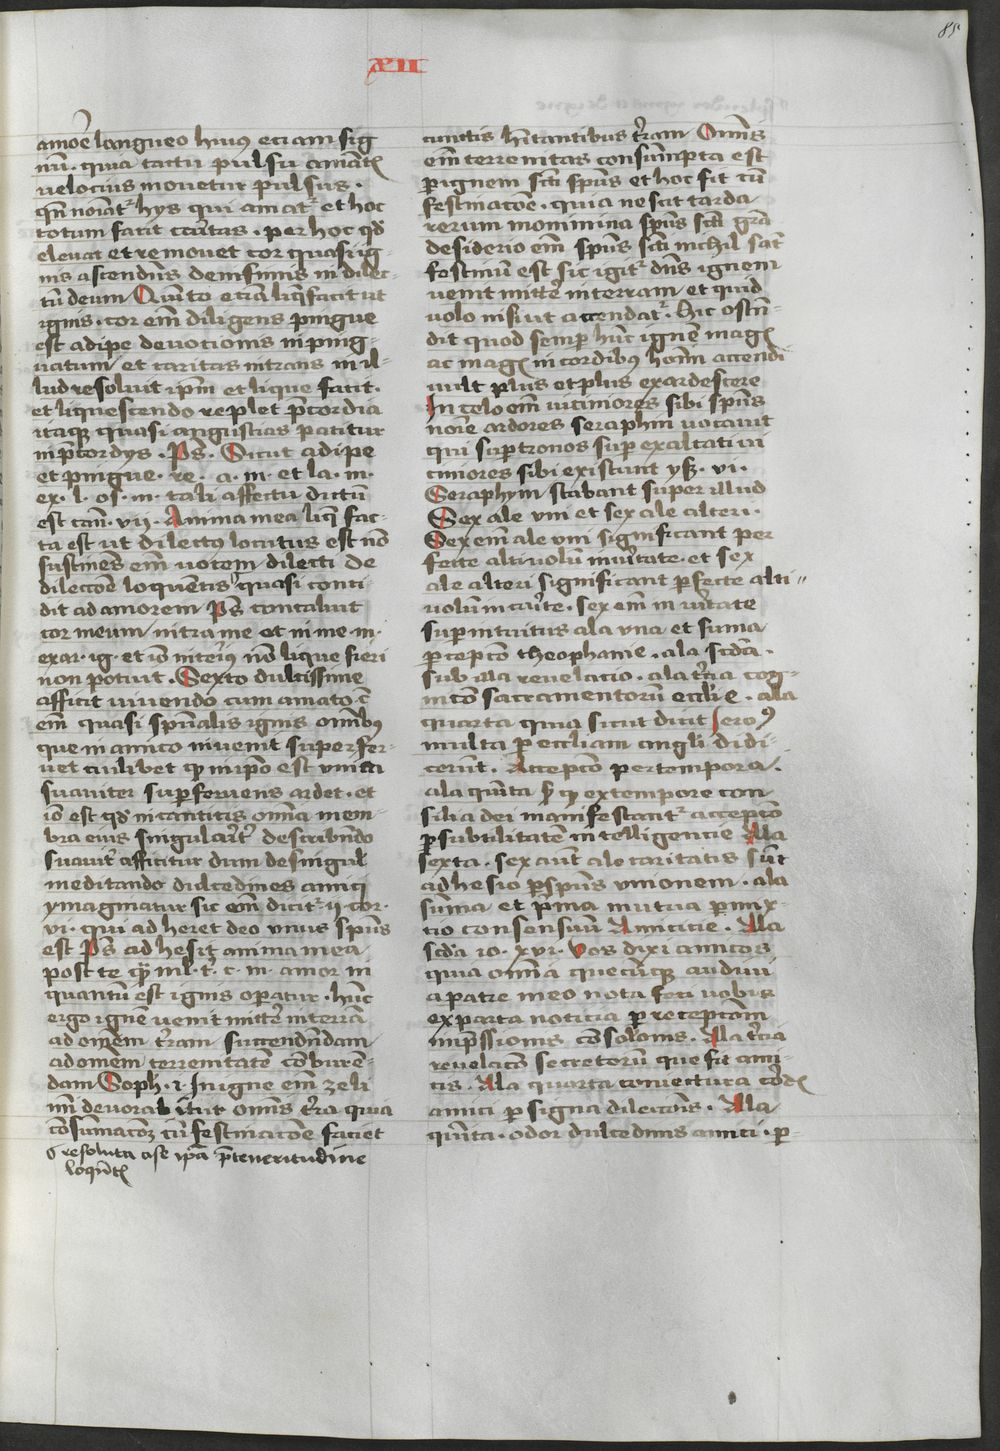 85
XII
amoē langueo huius eciam sig
nū. quia tactu pulsu amātꝭ
velocius mouetur pulsus.
qn̄ noīat᷑ hys qui amāt᷑ et hoc
totum facit caritas. per hoc qd̛
eleuat et remouet cor quasi ig
nis ascendens de infimis in dilec-
tū deum Quīto eciā liq̄facit ut
ignis. cor em̄ diligens pingue
est adipe deuotionis inping-
uatum et caritas intrans in il-
lud resoluit ipm̄ et lique facit.
et liquescendo replet p̄cordia
itaqꝫ quasi angustias patitur
in p̄cordys. Ps̄. Sicut adipe
et pingue. re. a. m. et la. m.
ex. l. os. m. tali affectu dictū
est can̄. vij. Anima mea liq̄ fac-
ta est ut dilectus locutus est nō
sustinēs em̄ uocem dilecti de
dilectōe loquentis quasi conti
dit ad amorem Ps̄ concaluit
cor meum intra me et in me m.
exar. ig. et iō interius nō lique fieri
non potuit. Sexto dulcissime
afficit viuendo cum amato. ē
em̄ quasi spūalis ignis omībꝫ
que in amico inuenit super fer-
uet cuilibet qꝫ in ipō est vnita
suauiter supferuens ardet. et
iō est qd̛ in canticis omīa mem-
bra eius singulariṫ describendo
suauiṫ afficitur dum de singul
meditando dulcedines amici
ymaginatur sic em̄ dicit᷑ ij. cor.
vi. qui adheret deo vnus spūs
est Ps̄ adhesit anima mea
post te qꝫ m̄l. t̄. c. m. amor in
quantū est ignis opatur. hūc
ergo ignē uenit mitt̛e in terrā
ad om̄em t̄ram succendendam
ad om̄em terrenitatē cōburē-
dam Soph. i. In igne em̄ zeli
mī deuorabitur om̄is t̄ra quia
cōsumacōꝫ cū festinacōe faciet
resoluta ase ipā p̄ teneritudine
loquētꝭ
cunctis hītantibus t̄ram Om̄is
em̄ terrenitas consumpta est
p ignem scī spūs et hoc fit cū
festinacōe. quia nescit tarda
rerum momīmina spūs scī grā
desiderio em̄ spūs scī nichil sat̄
festinū est sic igit᷑ dn̄s ignem
uenit mitt̛e in terram et quid
uolo nisi ut accendat᷑. Hic ostē-
dit quod semp hūc ignē magꝭ
ac magꝭ in cordibus hoīm accendi
uult plus et plus exardescere
In celo em̄ uiciniores sibi spūs
noīe ardores seraphin uocauit
qui sup tronos sup exaltati ui
ciniores sibi existunt ysa. vi.
Seraphym stabant super illud
Sex ale vni et sex ale alteri.
Sex em̄ ale vni significant per
fecte altiuolū inuitate. et sex
ale alteri significant pfecte alti
uolum in cīte. sex em̄ in ūitate
sup intuitus ala vna et suma
pcepcō theophanie. ala scda.
sub illa reuelacio. ala t̄cia cog-
nicō sacramentorū eccle. ala
quarta quia sicut dicit Ieroꝰ
multa p eccliam angli didi-
cerūt. Accepcō per tempora.
ala quīta qꝫ ex tempore con
silia dei manifestant᷑ accepcō
p subtilitatē intelligencie Ala
sexta. sex aut̄ ale caritatis sūt
adhesio p spūs vnionem. ala
suma et p̄ma mutua pmix-
tio consensuū Amicicie. Ala
scda io. xvi. Vos dixi amicos
quia om̄ia quecūqꝫ audiui
a patre meo nota feci uobis
ex parta noticia p recepcōm
imp̄ssionis cōsolonis. Ala t̄cia
reuelacō secretorū que fit ami-
cis. Ala quarta coniectura cordꝭ
amici p signa dilectōis. Ala
quīta. odor dulcedinis amici. p-